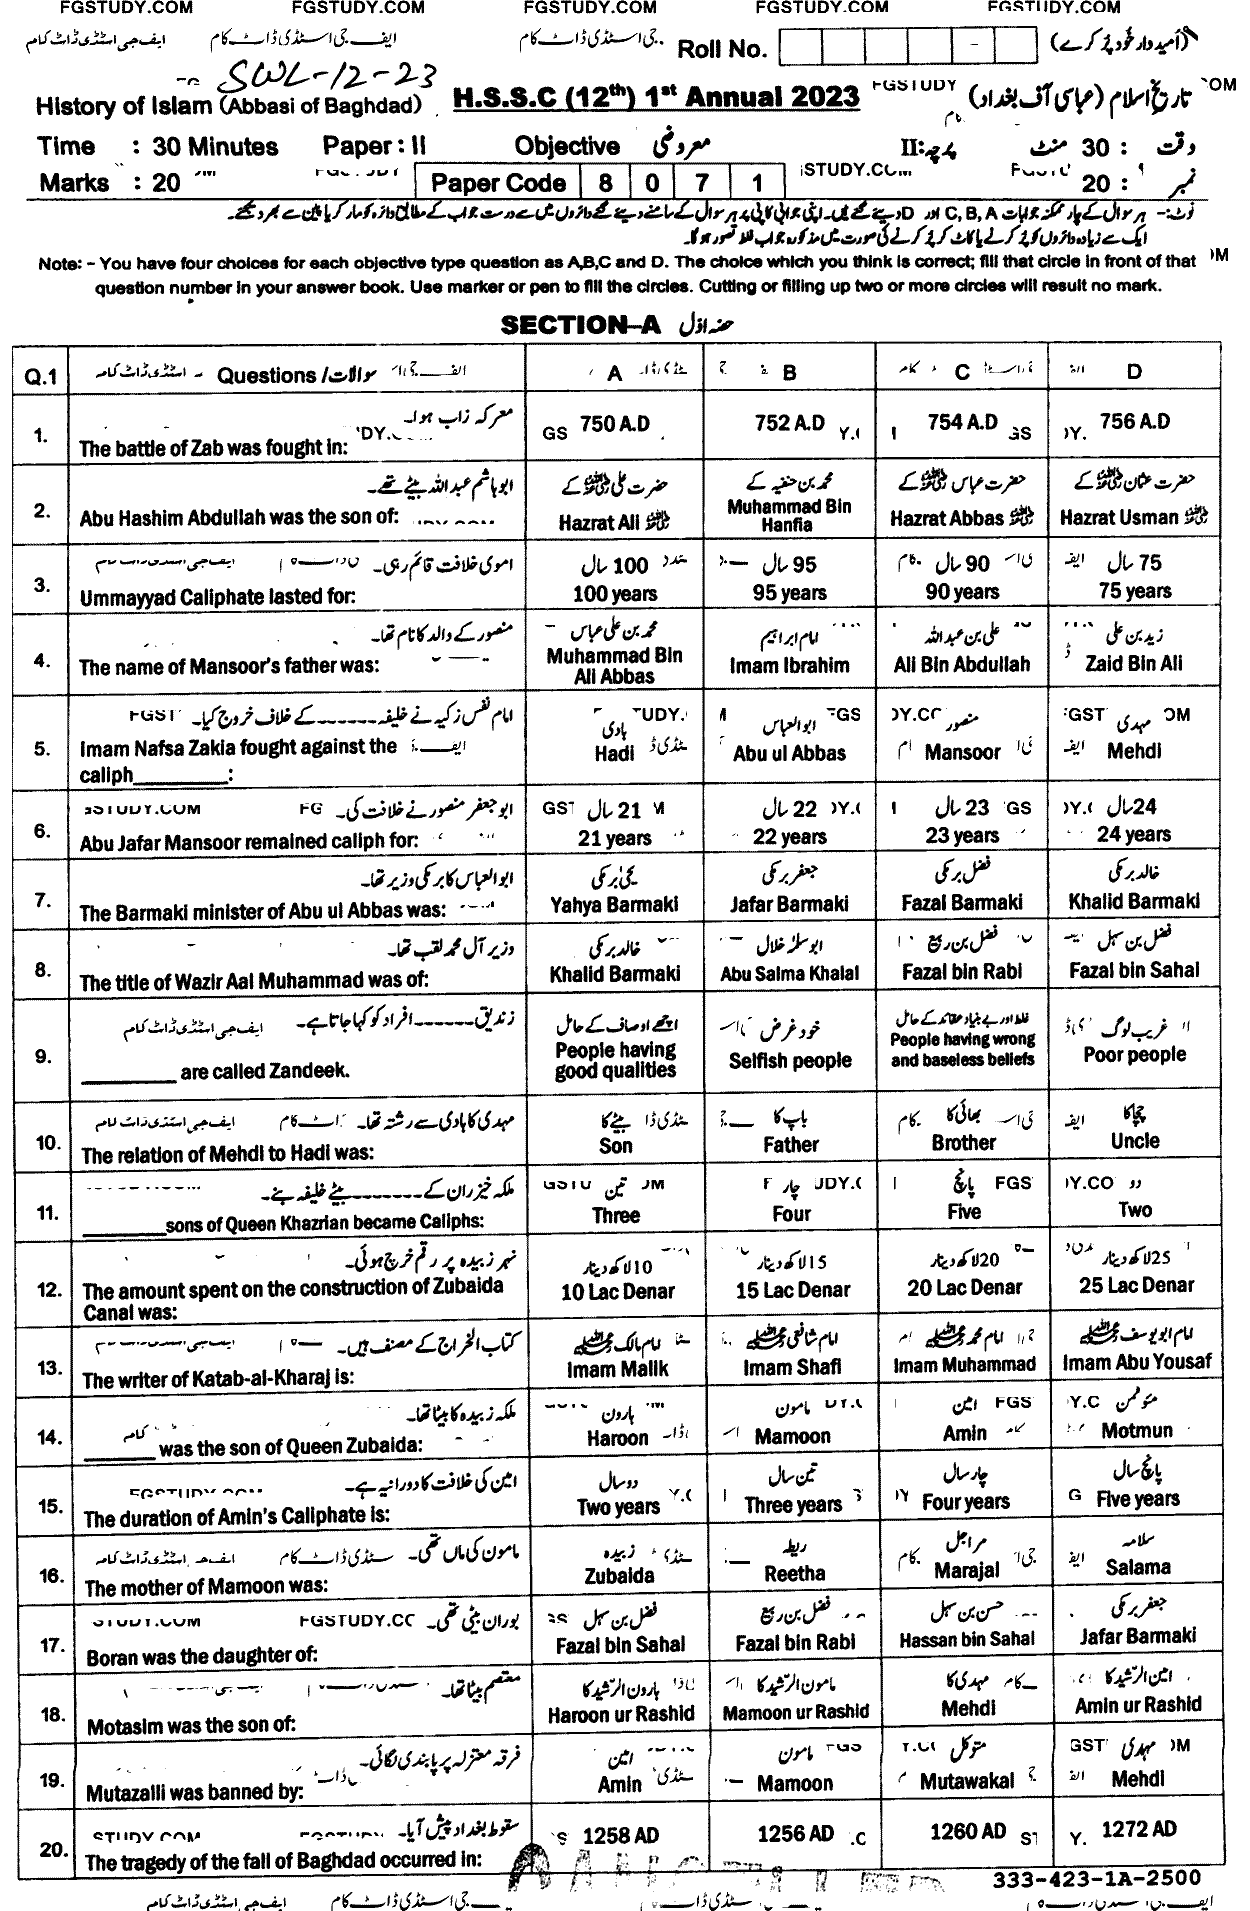 FGSTUDY.COM FGSTUDY.COM FGSTUDY.COM FGSTUDY.COM FGSTUDY.COM
ایف جی اسٹڈی ڈاٹ کام ایف جی اسٹڈی ڈاٹ کام جی اسٹڈی ڈاٹ کام Roll No. - (اُمیدوار خُود پُر کرے)
SWL-12-23
History of Islam (Abbasi of Baghdad) H.S.S.C (12th) 1st Annual 2023 FGSTUDY تاریخ اسلام (عباسی آف بغداد)
Time : 30 Minutes Paper: II Objective معروضی پرچہ: II وقت : 30 منٹ
Marks : 20 Paper Code 8 0 7 1 STUDY.COM نمبر : 20
نوٹ:- ہر سوال کے چار ممکنہ جوابات A, B, C اور D دیئے گئے ہیں۔ اپنی جوابی کاپی پر ہر سوال کے سامنے دیئے گئے دائروں میں سے درست جواب کے مطابق دائرہ کو مارکر یا پین سے بھر دیجئے۔
ایک سے زیادہ دائروں کو پُر کرنے یا کاٹ کر پُر کرنے کی صورت میں مذکورہ جواب غلط تصور ہو گا۔
Note: - You have four choices for each objective type question as A,B,C and D. The choice which you think is correct; fill that circle in front of that
question number in your answer book. Use marker or pen to fill the circles. Cutting or filling up two or more circles will result no mark.
SECTION-A حصّہ اوّل
Q.1 Questions / سوالات A B C D
1. معرکہ زاب ہوا۔
The battle of Zab was fought in: 750 A.D 752 A.D 754 A.D 756 A.D
2. ابو ہاشم عبداللہ بیٹے تھے۔ حضرت علیؓ کے محمد بن حنفیہ کے حضرت عباسؓ کے حضرت عثمانؓ کے
Abu Hashim Abdullah was the son of: Hazrat Ali ؓ Muhammad Bin Hanfia Hazrat Abbas ؓ Hazrat Usman ؓ
3. اموی خلافت قائم رہی۔ 100 سال 95 سال 90 سال 75 سال
Ummayyad Caliphate lasted for: 100 years 95 years 90 years 75 years
4. منصور کے والد کا نام تھا۔ محمد بن علی عباس امام ابراہیم علی بن عبداللہ زید بن علی
The name of Mansoor's father was: Muhammad Bin Ali Abbas Imam Ibrahim Ali Bin Abdullah Zaid Bin Ali
5. امام نفس زکیہ نے خلیفہ ------- کے خلاف خروج کیا۔ ہادی ابوالعباس منصور مہدی
Imam Nafsa Zakia fought against the caliph_________: Hadi Abu ul Abbas Mansoor Mehdi
6. ابو جعفر منصور نے خلافت کی۔ 21 سال 22 سال 23 سال 24 سال
Abu Jafar Mansoor remained caliph for: 21 years 22 years 23 years 24 years
7. ابوالعباس کا برمکی وزیر تھا۔ یحیٰی برمکی جعفر برمکی فضل برمکی خالد برمکی
The Barmaki minister of Abu ul Abbas was: Yahya Barmaki Jafar Barmaki Fazal Barmaki Khalid Barmaki
8. وزیر آل محمد لقب تھا۔ خالد برمکی ابو سلمہٰ خلال فضل بن ربیع فضل بن سہل
The title of Wazir Aal Muhammad was of: Khalid Barmaki Abu Salma Khalal Fazal bin Rabi Fazal bin Sahal
9. زندیق ------- افراد کو کہا جاتا ہے۔ اچھے اوصاف کے حامل خود غرض غلط اور بے بنیاد عقائد کے حامل غریب لوگ
_________ are called Zandeek. People having good qualities Selfish people People having wrong and baseless beliefs Poor people
10. مہدی کا ہادی سے رشتہ تھا۔ بیٹے کا باپ کا بھائی کا چچا کا
The relation of Mehdi to Hadi was: Son Father Brother Uncle
11. ملکہ خیزران کے ------- بیٹے خلیفہ بنے۔ تین چار پانچ دو
________sons of Queen Khazrian became Caliphs: Three Four Five Two
12. نہر زبیدہ پر رقم خرچ ہوئی۔ 10 لاکھ دینار 15 لاکھ دینار 20 لاکھ دینار 25 لاکھ دینار
The amount spent on the construction of Zubaida Canal was: 10 Lac Denar 15 Lac Denar 20 Lac Denar 25 Lac Denar
13. کتاب الخراج کے مصنف ہیں۔ امام مالکؒ امام شافعیؒ امام محمدؒ امام ابو یوسفؒ
The writer of Katab-al-Kharaj is: Imam Malik Imam Shafi Imam Muhammad Imam Abu Yousaf
14. ملکہ زبیدہ کا بیٹا تھا۔ ہارون مامون امین مؤتمن
_______ was the son of Queen Zubaida: Haroon Mamoon Amin Motmun
15. امین کی خلافت کا دورانیہ ہے۔ دو سال تین سال چار سال پانچ سال
The duration of Amin's Caliphate is: Two years Three years Four years Five years
16. مامون کی ماں تھی۔ زبیدہ ریطہ مراجل سلامہ
The mother of Mamoon was: Zubaida Reetha Marajal Salama
17. بوران بیٹی تھی۔ فضل بن سہل فضل بن ربیع حسن بن سہل جعفر برمکی
Boran was the daughter of: Fazal bin Sahal Fazal bin Rabi Hassan bin Sahal Jafar Barmaki
18. معتصم بیٹا تھا۔ ہارون الرّشید کا مامون الرّشید کا مہدی کا امین الرّشید کا
Motasim was the son of: Haroon ur Rashid Mamoon ur Rashid Mehdi Amin ur Rashid
19. فرقہ معتزلہ پر پابندی لگائی۔ امین مامون متوکل مہدی
Mutazalli was banned by: Amin Mamoon Mutawakal Mehdi
20. سقوط بغداد پیش آیا۔
The tragedy of the fall of Baghdad occurred in: 1258 AD 1256 AD 1260 AD 1272 AD
333-423-1A-2500